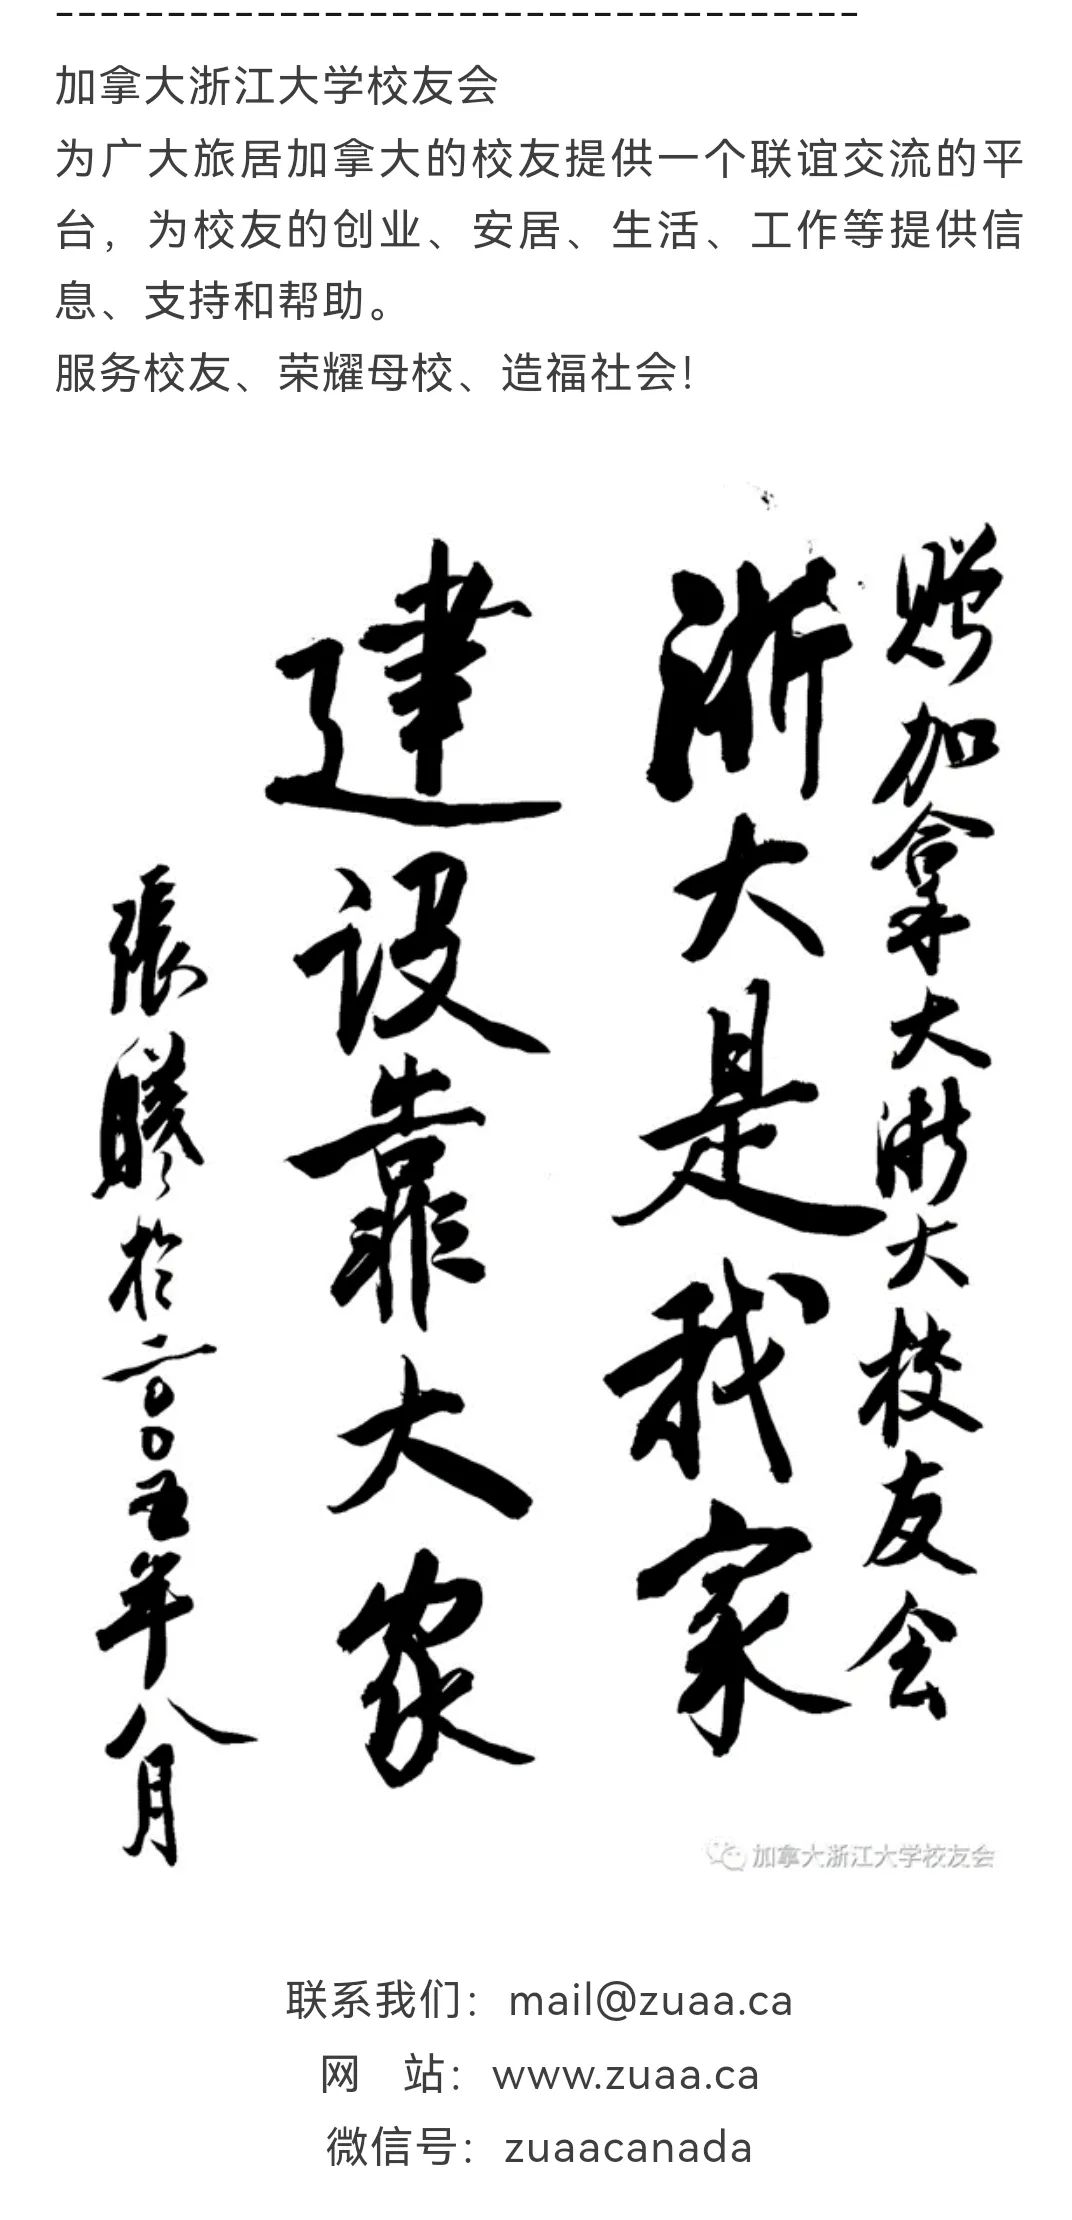 加拿大浙江大学校友会
为广大旅居加拿大的校友提供一个联谊交流的平
台，为校友的创业、安居、生活、工作等提供信
息、支持和帮助。
服务校友、荣耀母校、造福社会！
赠加拿大浙大校友会
浙大是我家
建设靠大家
張曦於二〇〇五年八月
加拿大浙江大学校友会
联系我们：mail@zuaa.ca
网 站：www.zuaa.ca
微信号：zuaacanada